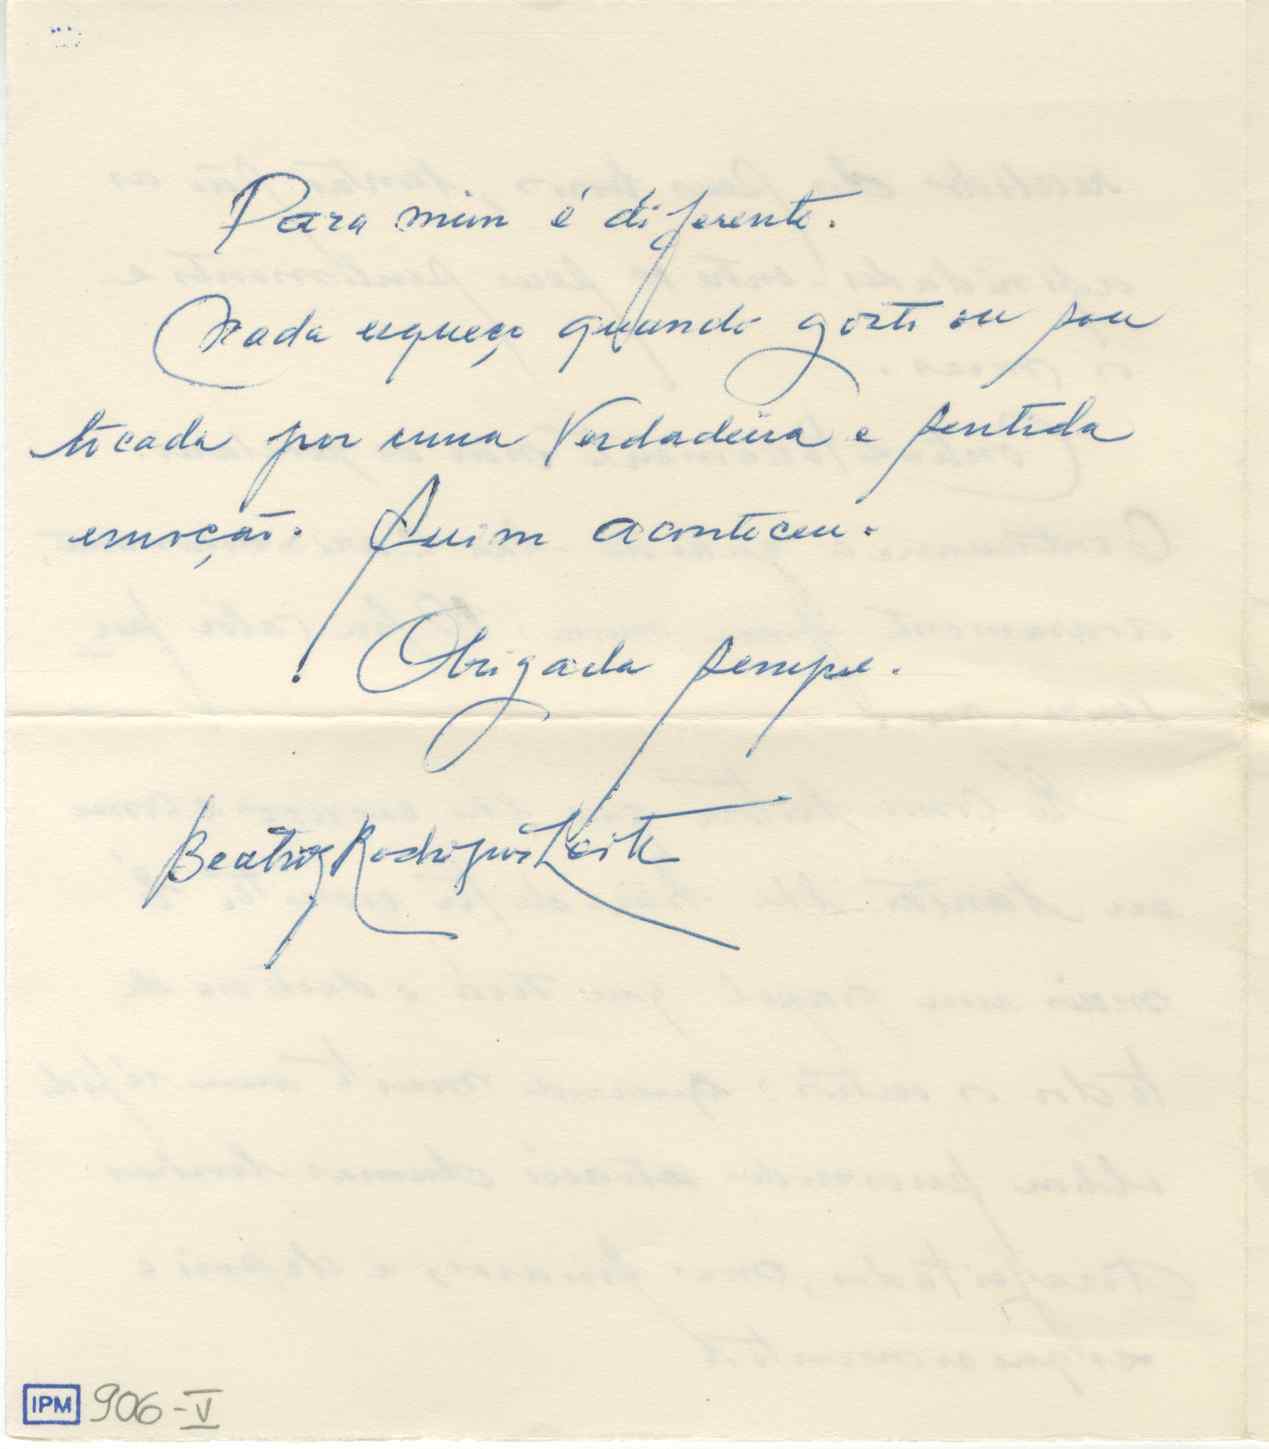 Para mim é diferente.
Nada esqueço quando gosto ou sou
tocada por uma verdadeira e sentida
emoção. Assim aconteceu.
Obrigada sempre.
Beatriz Rodrigues Leite
IPM 906-V